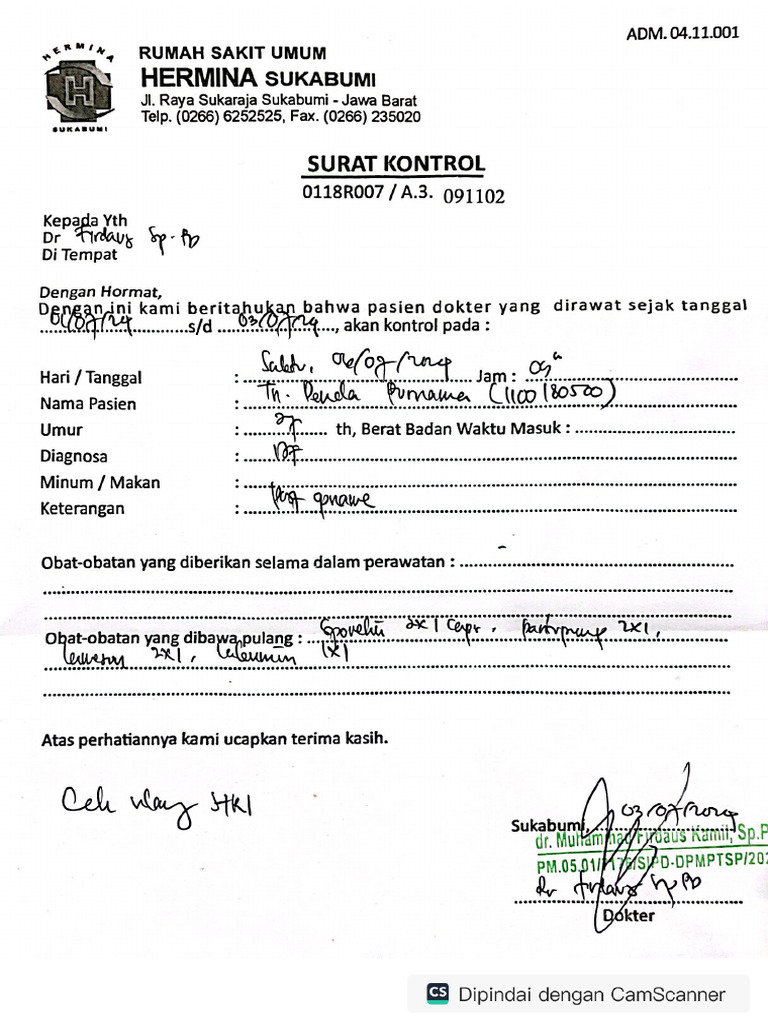 ADM. 04.11.001
HERMINA
SUKABUMI
RUMAH SAKIT UMUM
HERMINA SUKABUMI
Jl. Raya Sukaraja Sukabumi - Jawa Barat
Telp. (0266) 6252525, Fax. (0266) 235020
SURAT KONTROL
0118R007 / A.3. 091102
Kepada Yth
Dr Firdaus Sp.PD
Di Tempat
Dengan Hormat,
Dengan ini kami beritahukan bahwa pasien dokter yang dirawat sejak tanggal
01/07/24 s/d 03/07/24, akan kontrol pada :
Hari / Tanggal : Sabtu, 06/07/2024 Jam : 09
Nama Pasien : Tn. Purnama (1100180500)
Umur : 27 th, Berat Badan Waktu Masuk :
Diagnosa : DF
Minum / Makan :
Keterangan : post opname
Obat-obatan yang diberikan selama dalam perawatan : -
Obat-obatan yang dibawa pulang : 2x1 , 2x1,
2x1, 1x1
Atas perhatiannya kami ucapkan terima kasih.
Cek ulang
Sukabumi, 03/07/2024
dr. Muhammad Firdaus Kamil, Sp.P
PM.05.01/ /SIPD-DPMPTSP/202
Dr Firdaus Sp PD
Dokter
CS Dipindai dengan CamScanner